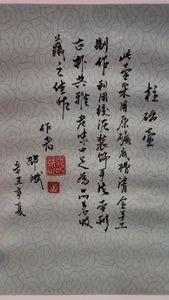 柱础壶
此壶采用原矿底槽清全手工
制作利用绞泥装饰手法壶形
古朴典雅老味十足为品茗收
藏之佳作
作者
辛丑年夏